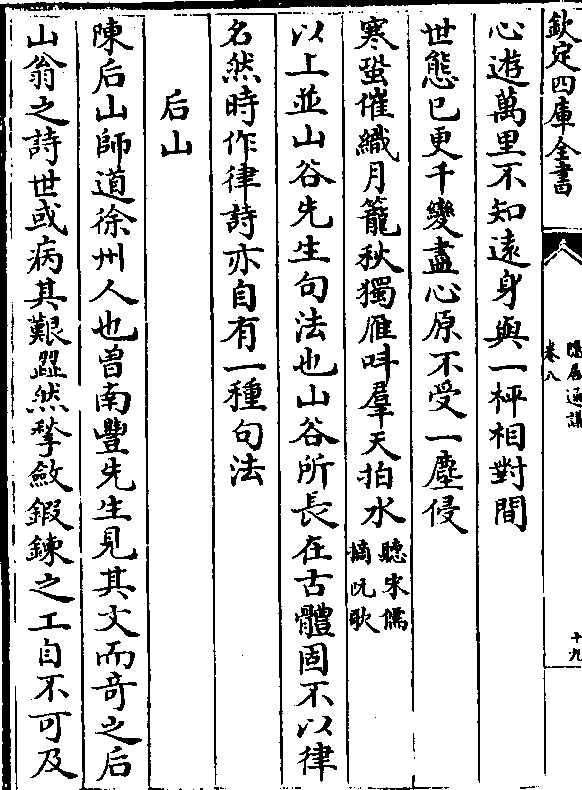 欽定四庫全書
隱居通議
卷八
十九
心遊萬里不知遠身與一枰相對間
世態已更千變盡心原不受一塵侵
寒蛩催織月籠秋獨雁呌羣天拍水聽宋儒摘阮歌
以上並山谷先生句法也山谷所長在古體固不以律
名然時作律詩亦自有一種句法
后山
陳后山師道徐州人也曾南豐先生見其文而竒之后
山翁之詩世或病其艱澀然揫斂鍜鍊之工自不可及